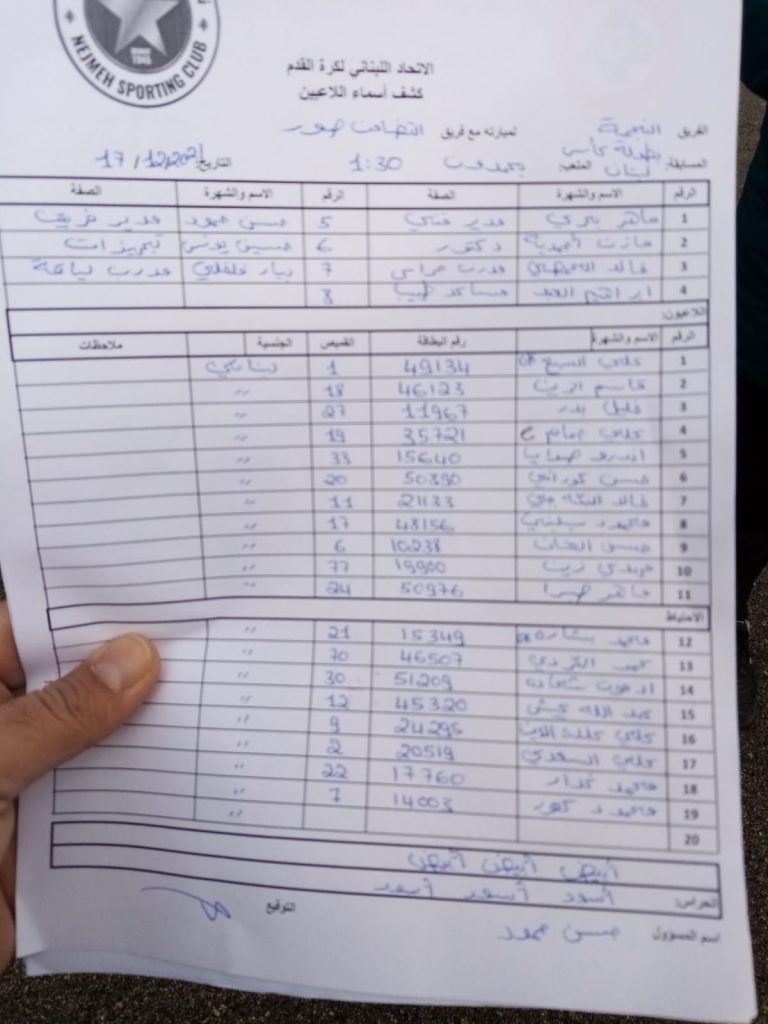 NEJMEH SPORTING CLUB
الاتحاد اللبناني لكرة القدم
كشف أسماء اللاعبين
الفريق النجمة لمبارته مع فريق التضامن صور
المسابقة: بطولة كأس لبنان الملعب: بحمدون 1:30 التاريخ: 17/12/2021
الرقم الاسم والشهرة الصفة الرقم الاسم والشهرة الصفة
1 ماهر مدير فني 5 حسن حمود مدير فريق
2 مازن أحمدية دكتور 6 حسين يونس تجهيزات
3 خالد مدرب حراس 7 بيار مدرب لياقة
4 ابراهيم العبد مساعد طبيب 8
اللاعبون:
الرقم الاسم والشهرة رقم البطاقة القميص الجنسية ملاحظات
1 علي السبع 49134 1 لبناني
2 قاسم الزين 46123 18 "
3 خليل بدر 11967 27 "
4 علي حمام 35721 19 "
5 اندرو صوايا 15640 33 "
6 حسن كوراني 50890 20 "
7 خالد التكه جي 21133 11 "
8 محمود سبليني 48156 17 "
9 حسن العنان 10238 6 "
10 مهدي زين 19900 77 "
11 ماهر صبرا 50976 24 "
الاحتياط
12 محمد بشاره 15349 21 "
13 الكردي 46507 70 "
14 شحاده 51209 30 "
15 عبد الله عيش 45320 12 "
16 علي علاء الدين 24295 9 "
17 علي السعدي 20519 2 "
18 محمد غدار 17760 22 "
19 محمود كعور 14003 7 "
20
أبيض أبيض أبيض
الحراس: أسود أسود أسود
اسم المسؤول حسن حمود التوقيع